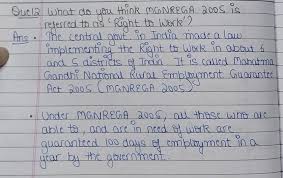 Que12 What do you think MGNREGA 2005 is
referred to as 'Right to Work'?
Ans. • The central govt. in India made a law
implementing the Right to Work in about 6
and 5 districts of India. It is called Mahatma
Gandhi National Rural Employment Guarantee
Act 2005 (MGNREGA 2005)
• Under MGNREGA 2005, all those who are
able to, and are in need of work are
guaranteed 100 days of employment in a
year by the government.